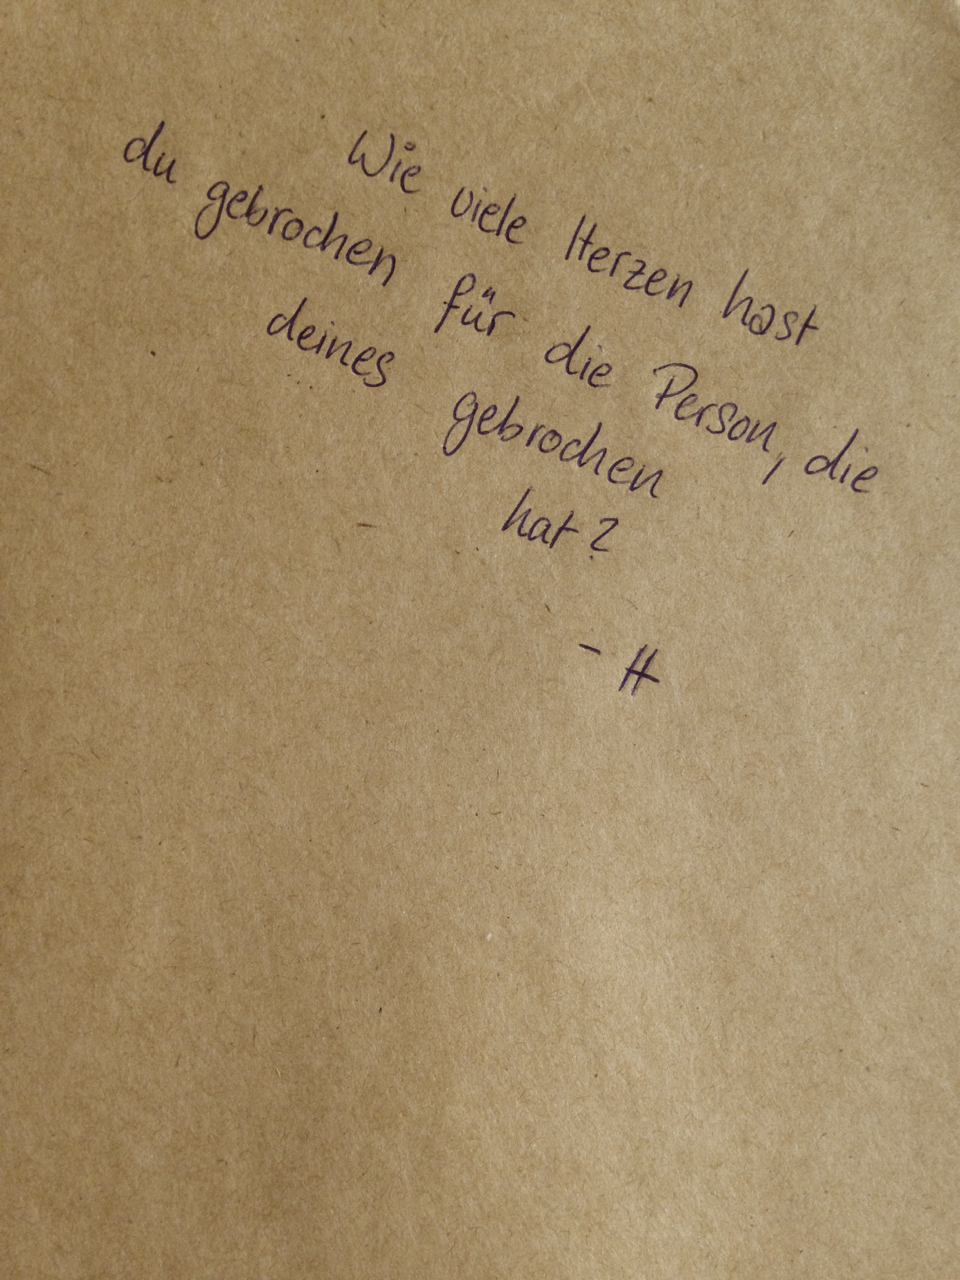 Wie viele Herzen hast
du gebrochen für die Person, die
deines gebrochen
hat?
- H